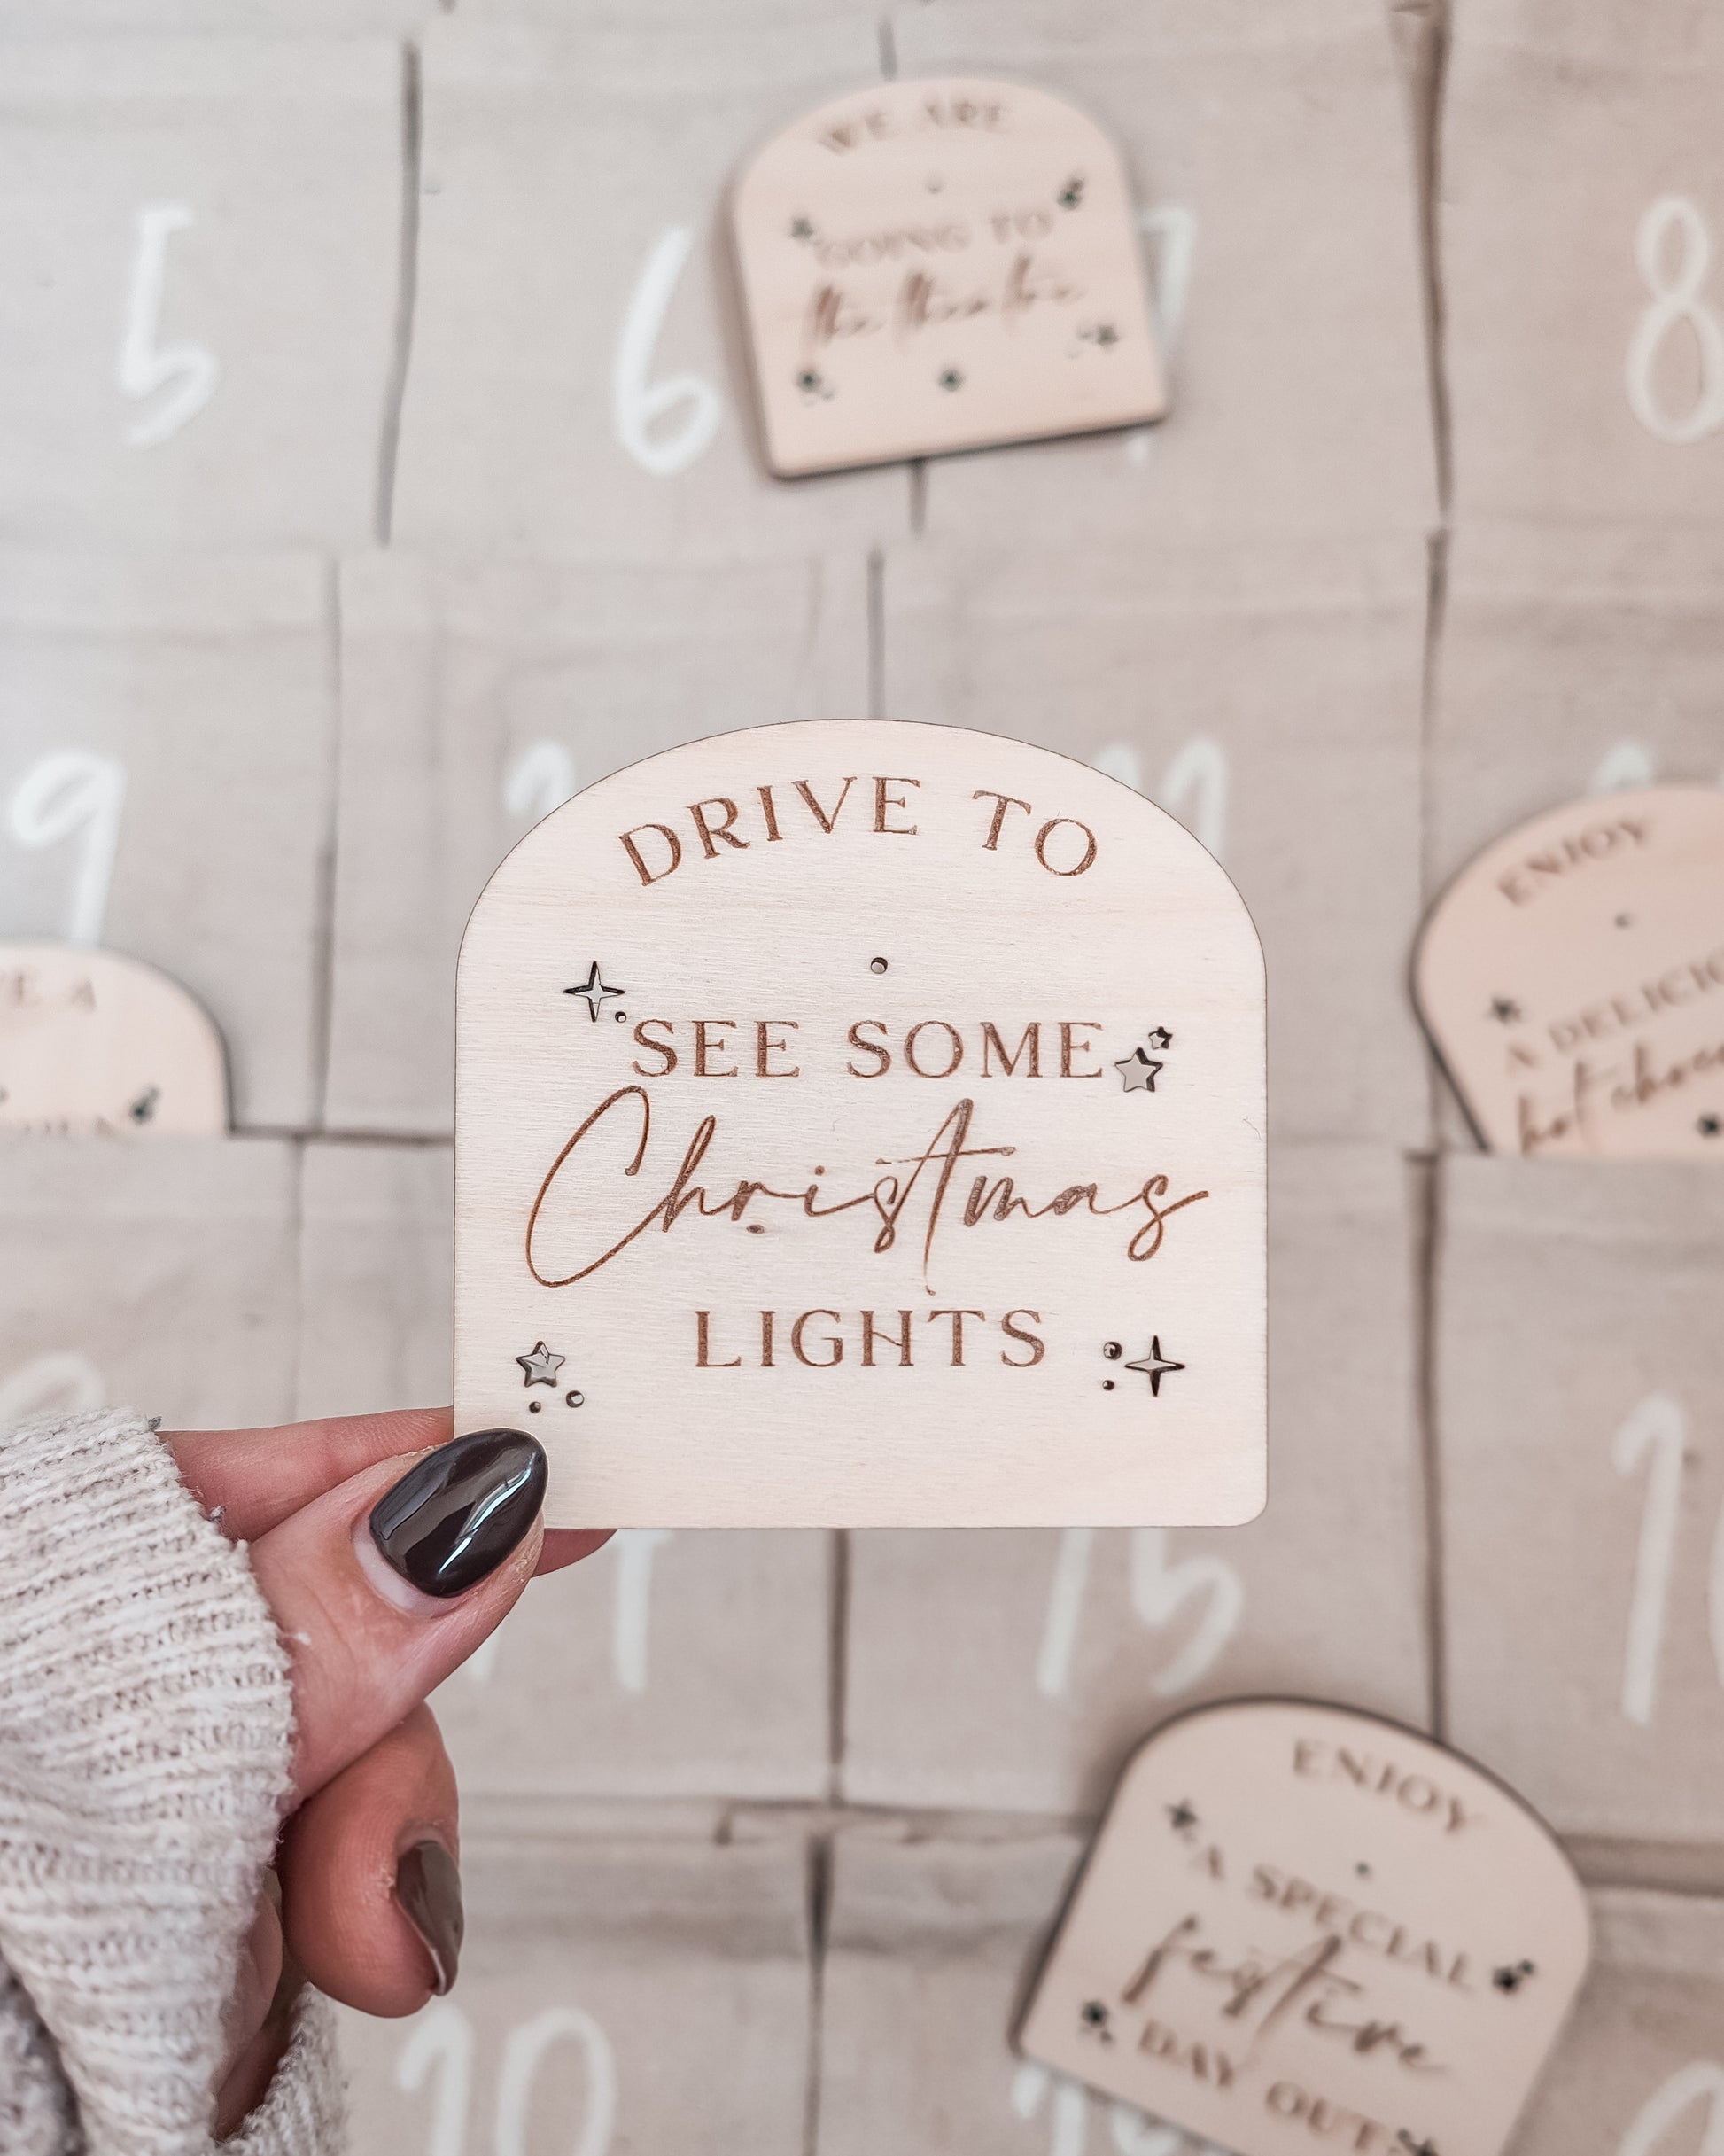 5
6
7
8
WE ARE
GOING TO
the theatre
9
11
DRIVE TO
SEE SOME
Christmas
LIGHTS
ENJOY
A DELICIO
hot choc
VE A
15
1
ENJOY
A SPECIAL
festive
DAY OUT